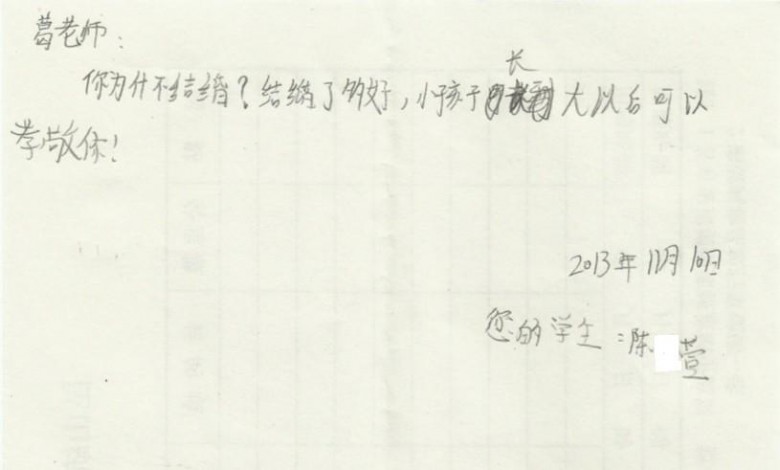 葛老师：
你为什不结婚？结婚了多好，小孩子长大以后可以
孝敬你！
2013年11月10日
您的学生：陈 萱